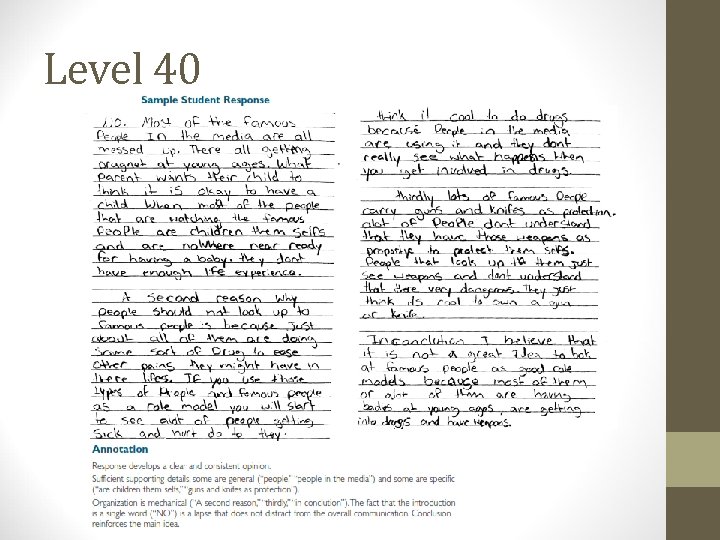 Level 40
Sample Student Response
NO. Most of the famous
People In the media are all
messed up. There all getting
pragnat at young ages. What
parent wants their child to
think it is okay to have a
child when most of the people
that are watching the famous
people are children them selfs
and are nowhere near ready
for having a baby. they dont
have enough life experience.
A second reason why
people should not look up to
famous people is because just
about all of them are doing
some sort of Drug to ease
other pains they might have in
there lifes. If you use those
types of People and famous people
as a role model you will start
to see alot of people getting
sick and hurt do to they
think it cool to do drugs
because People in the media
are using it and they dont
really see what happens when
you get involved in drugs.
thirdly lots of famous People
carry guns and knifes as protection.
alot of People dont understand
that they have those weapons as
to protect them selfs.
People that look up to them just
see weapons and dont understand
that there very dangerous. They just
think its cool to own a gun
or knife.
In conclution I believe that
it is not a great Idea to look
at famous people as good role
models because most of them
or alot of them are having
babies at young ages, are getting
into drugs and have weapons.
Annotation
Response develops a clear and consistent opinion.
Sufficient supporting details some are general ("people," "people in the media") and some are specific
("are children them selfs," "guns and knifes as protection").
Organization is mechanical ("A second reason," "thirdly," "in conclution"). The fact that the introduction
is a single word ("NO") is a lapse that does not distract from the overall communication. Conclusion
reinforces the main idea.